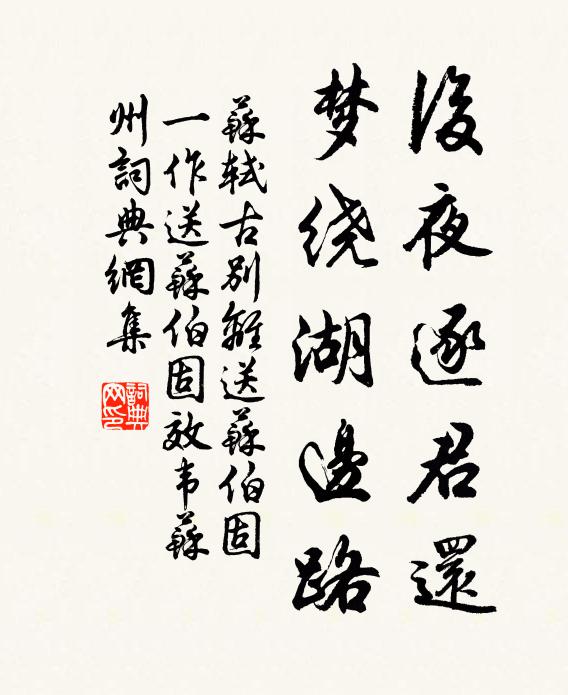 後夜逐君還
梦绕湖邊路
蘇軾古别離送蘇伯固
一作送蘇伯固效韦蘇
州詞典網集
詞典
网印